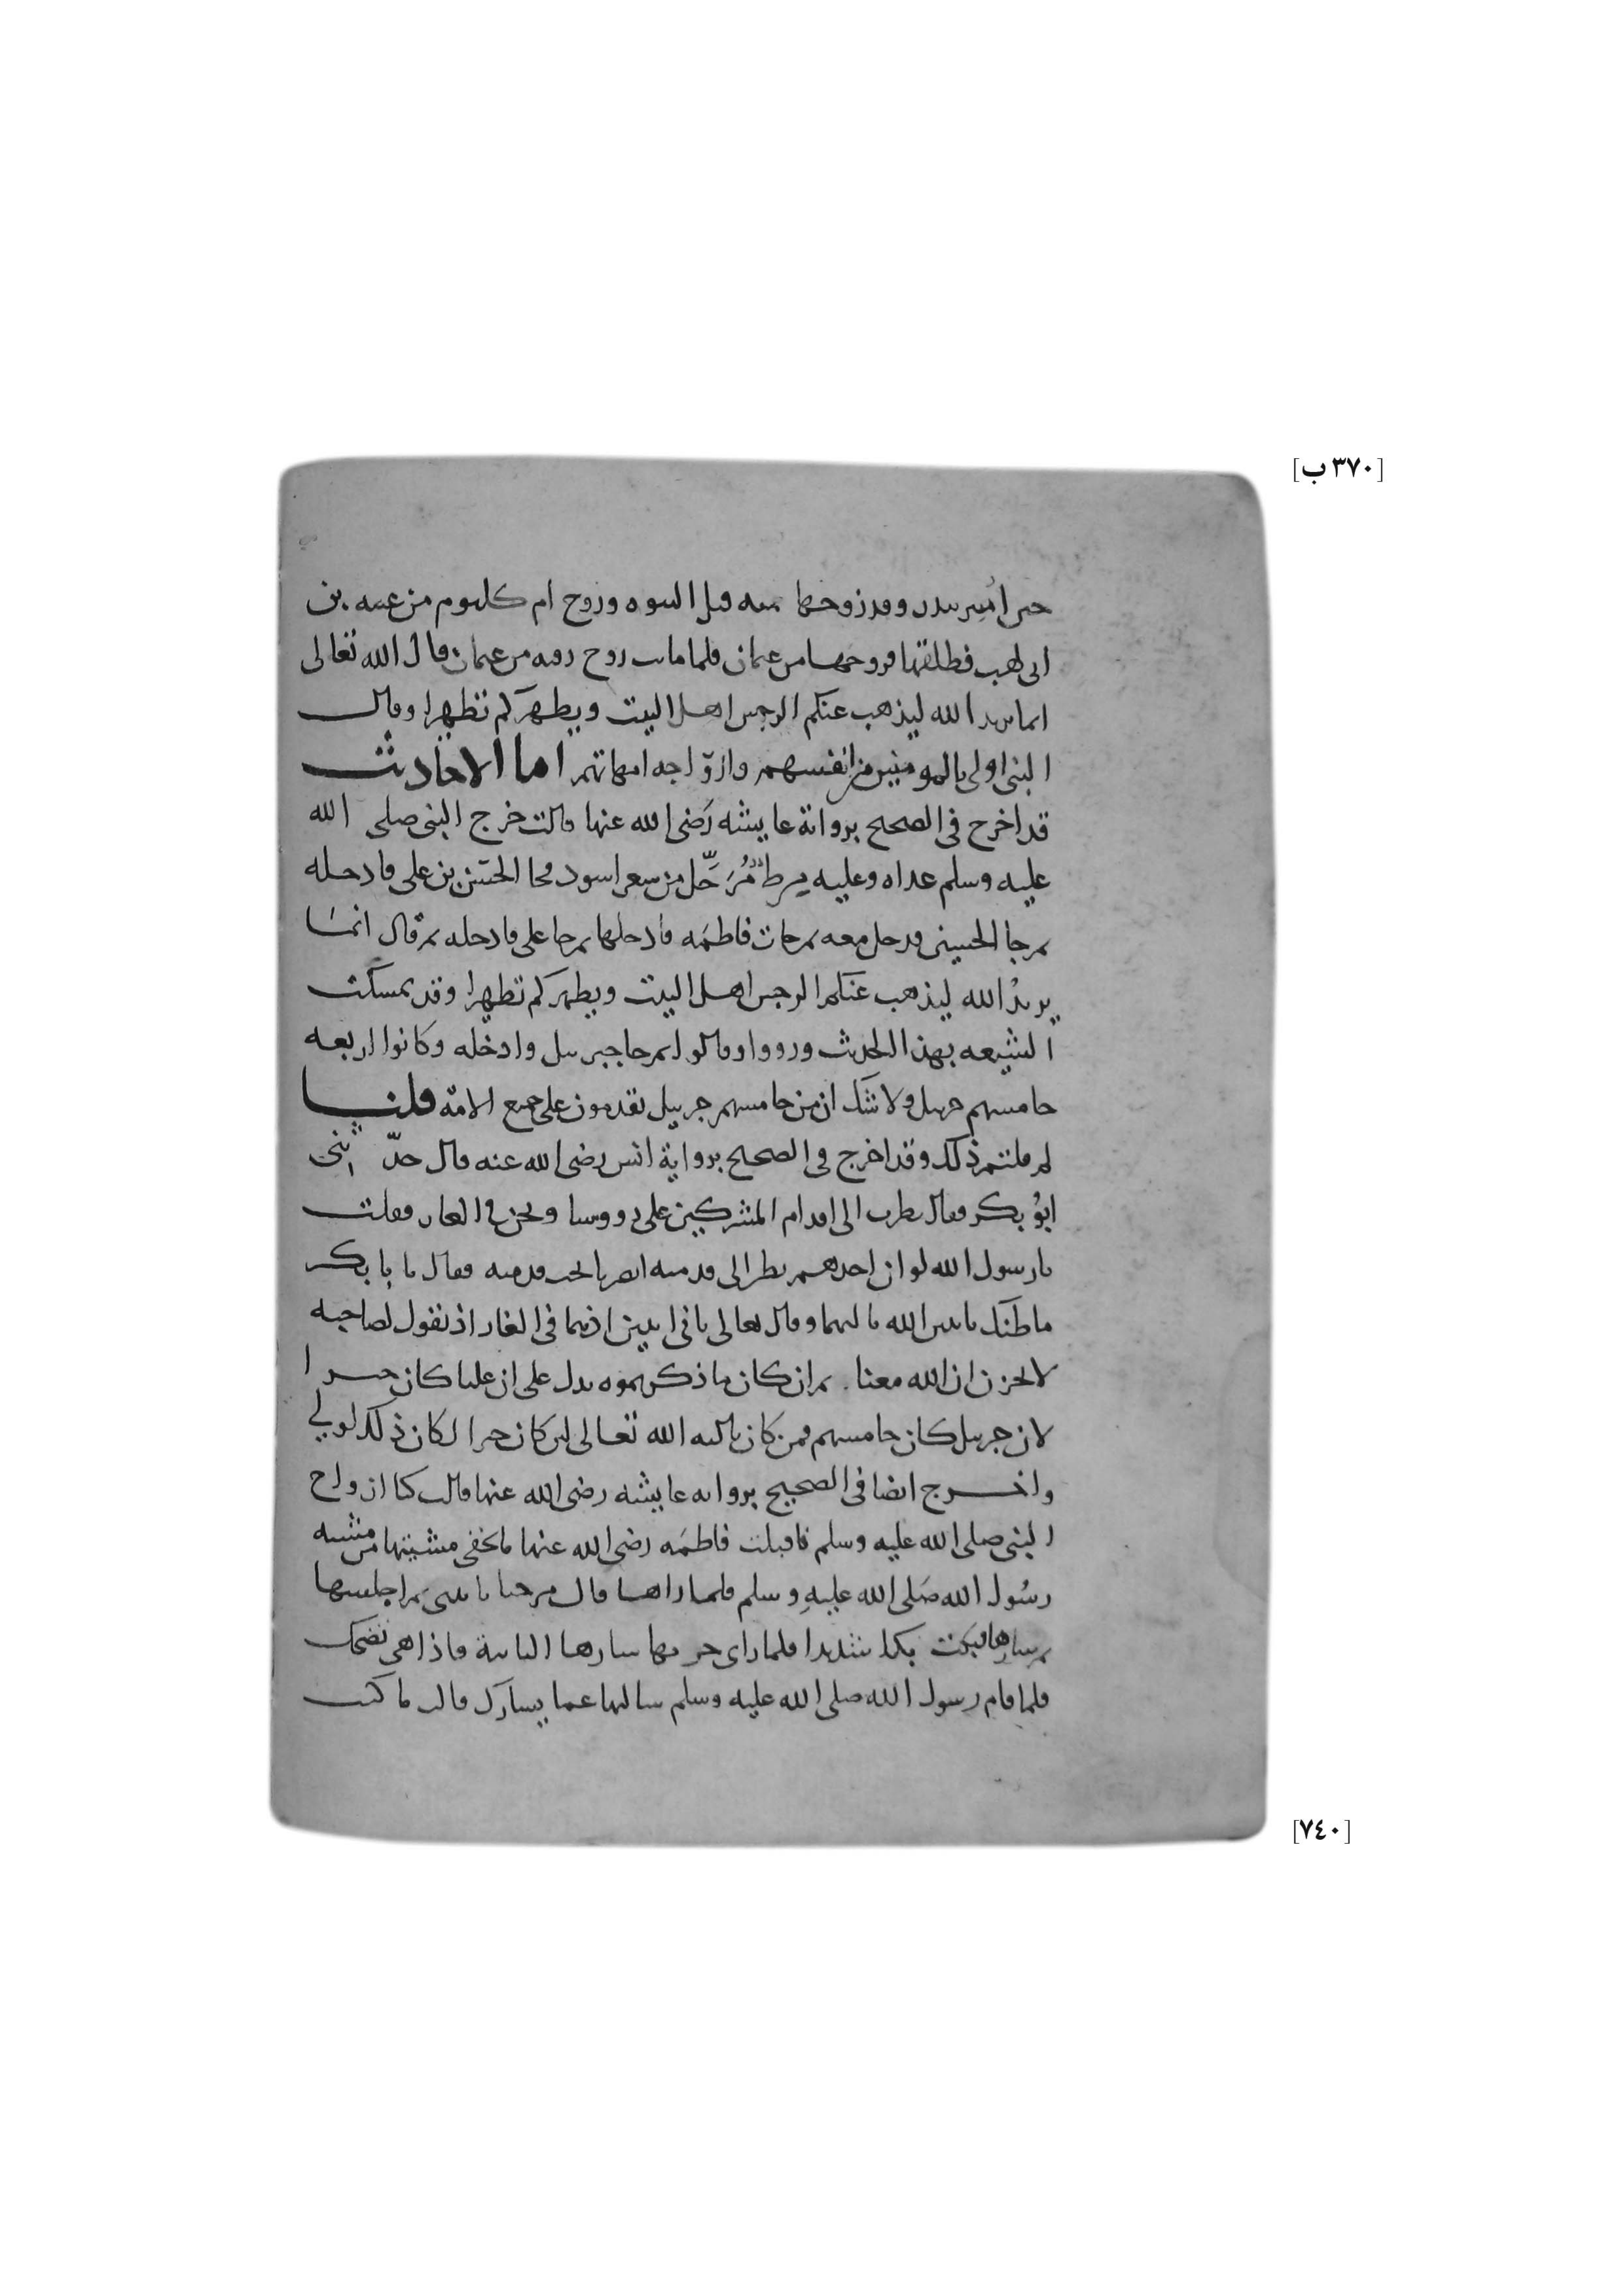 [٣٧٠ ب]
حين أسر ببدر وقد زوجها منه قبل النبوة وزوج ام كلثوم من عتبة بن
ابى لهب فطلقها فزوجها من عثمان فلما ماتت زوج رقية من عثمان قال الله تعالى
انما يريد الله ليذهب عنكم الرجس اهل البيت ويطهركم تطهيرا وقال
النبى اولى بالمومنين من انفسهم وازواجه امهاتهم اما الاحاديث
قد اخرج فى الصحيح برواية عايشه رَضى الله عنها قالت خرج النبى صلى الله
عليه وسلم غداه وعليه مرط مُرَحَّل من شعر اسود فجا الحسَن بن على فادخله
ثم جا الحسين فدخل معه ثم جات فاطمَه فادخلها ثم جا على فادخله ثم قال انمَا
يريدُ الله ليذهب عنكم الرجس اهل البيت ويطهركم تطهيرا وقد تمسكت
الشيعه بهذا الحديث ورووا وقالوا ثم جا جبريل وادخله وكانوا اربعه
خامسهم جبريل ولا شك ان من خامسهم جبريل يقدمون على جميع الامة قلنا
لم قلتم ذلك وقد اخرج فى الصحيح برواية انس رضى الله عنه قال حدّثنى
ابوُ بكر فقال نظرت الى اقدام المشركين على رووسنا ونحن فى الغار فقلت
يا رسول الله لو ان احدهم نظر الى قدميه ابصرنا تحت قدميه فقال يا با بكر
ما ظنك باثنين الله ثالثهما وقال تعالى ثانى اثنين اذ هما فى الغار اذ يقول لصاحبه
لا تحزن ان الله معنا . ثم ان كان ما ذكرتموه يدل على ان عليا كان خيرا
لان جبريل كان خامسهم فمن كان ثالثه الله تعالى لئن كان خيرا لكان ذلك لولى
واخرج ايضا فى الصحيح برواية عايشه رضى الله عنها قالت كنا ازواج
النبى صلى الله عليه وسلم فاقبلت فاطمَه رضى الله عنها ما تخفى مشيتها من مشيه
رسُول الله صَلى الله عليهِ وسلم فلما راها قال مرحبا يا بنتى ثم اجلسها
ثم سارها فبكت بكا شديدا فلما راى حزنها سارها الثانية فاذا هى تضحك
فلما قام رسول الله صلى الله عليه وسلم سالتها عما يسارك قالت ما كنت
[٧٤٠]